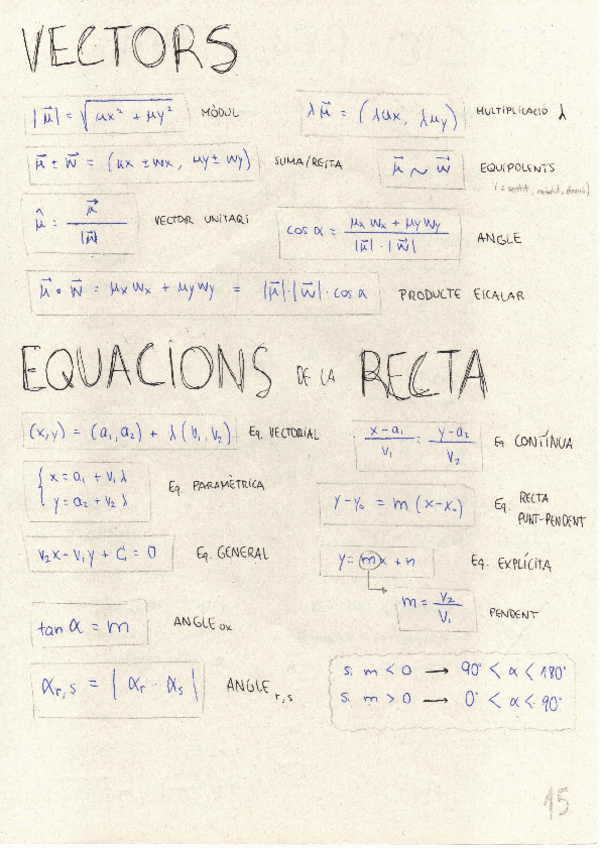 VECTORS
|μ⃗| = √(μx² + μy²) MÒDUL
λμ⃗ = (λμx, λμy) MULTIPLICACIÓ λ
μ⃗ ± w⃗ = (μx ± wx, μy ± wy) SUMA/RESTA
μ⃗ ~ w⃗ EQUIPOLENTS
μ̂ = μ⃗ / |μ⃗| VECTOR UNITARI
cos α = (μx wx + μy wy) / (|μ⃗| · |w⃗|) ANGLE
μ⃗ • w⃗ = μx wx + μy wy = |μ⃗|·|w⃗|·cos α PRODUCTE EICALAR
EQUACIONS DE LA RECTA
(x,y) = (a₁,a₂) + λ(v₁,v₂) Eq. VECTORIAL
(x-a₁)/v₁ = (y-a₂)/v₂ Eq CONTÍNUA
{ x = a₁ + v₁λ
y = a₂ + v₂λ Eq. PARAMÈTRICA
y-y₀ = m(x-x₀) Eq. RECTA
PUNT-PENDENT
v₂x - v₁y + C = 0 Eq. GENERAL
y = mx + n Eq. EXPLÍCITA
m = v₂/v₁ PENDENT
tan α = m ANGLE ox
αr,s = | αr - αs | ANGLE r,s
si m < 0 → 90° < α < 180°
si m > 0 → 0° < α < 90°
15